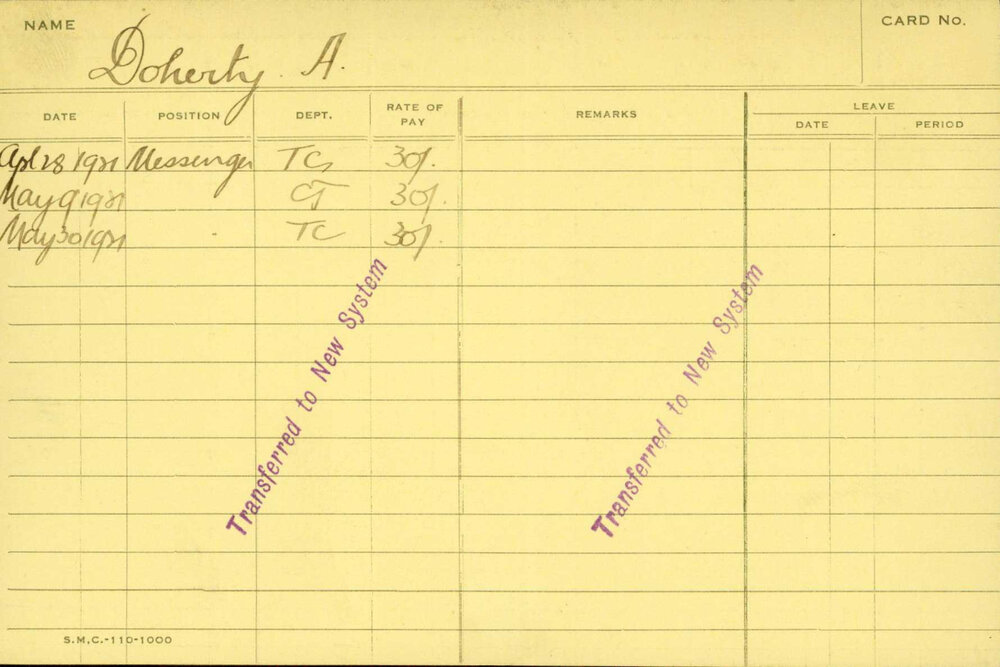 NAME
CARD No.
Doherty. A.
DATE POSITION DEPT. RATE OF PAY REMARKS LEAVE
DATE PERIOD
Apl 28 1921 Messenger TC 30/.
May 9 1921 CT 30/.
May 30 1921 - TC 30/.
Transferred to New System
Transferred to New System
S.M,C.-110-1000